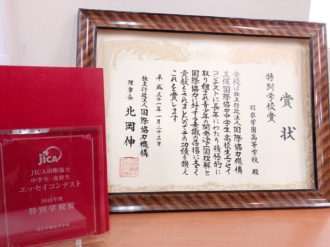 賞状
特別学校賞
羽衣学園高等学校 殿
貴校は独立行政法人国際協力機構
主催国際協力中学生・高校生エッセイ
コンテストに長年にわたり積極的に
取り組まれ青少年の開発途上国理解と
国際協力に対する意識の啓発に大きく
貢献されましたのでその功績を讃え
これを賞します
平成三十一年一月二十三日
独立行政法人国際協力機構
理事長 北岡伸一
JICA
JICA国際協力
中学生・高校生
エッセイコンテスト
2018年度
特別学校賞
羽衣学園高等学校